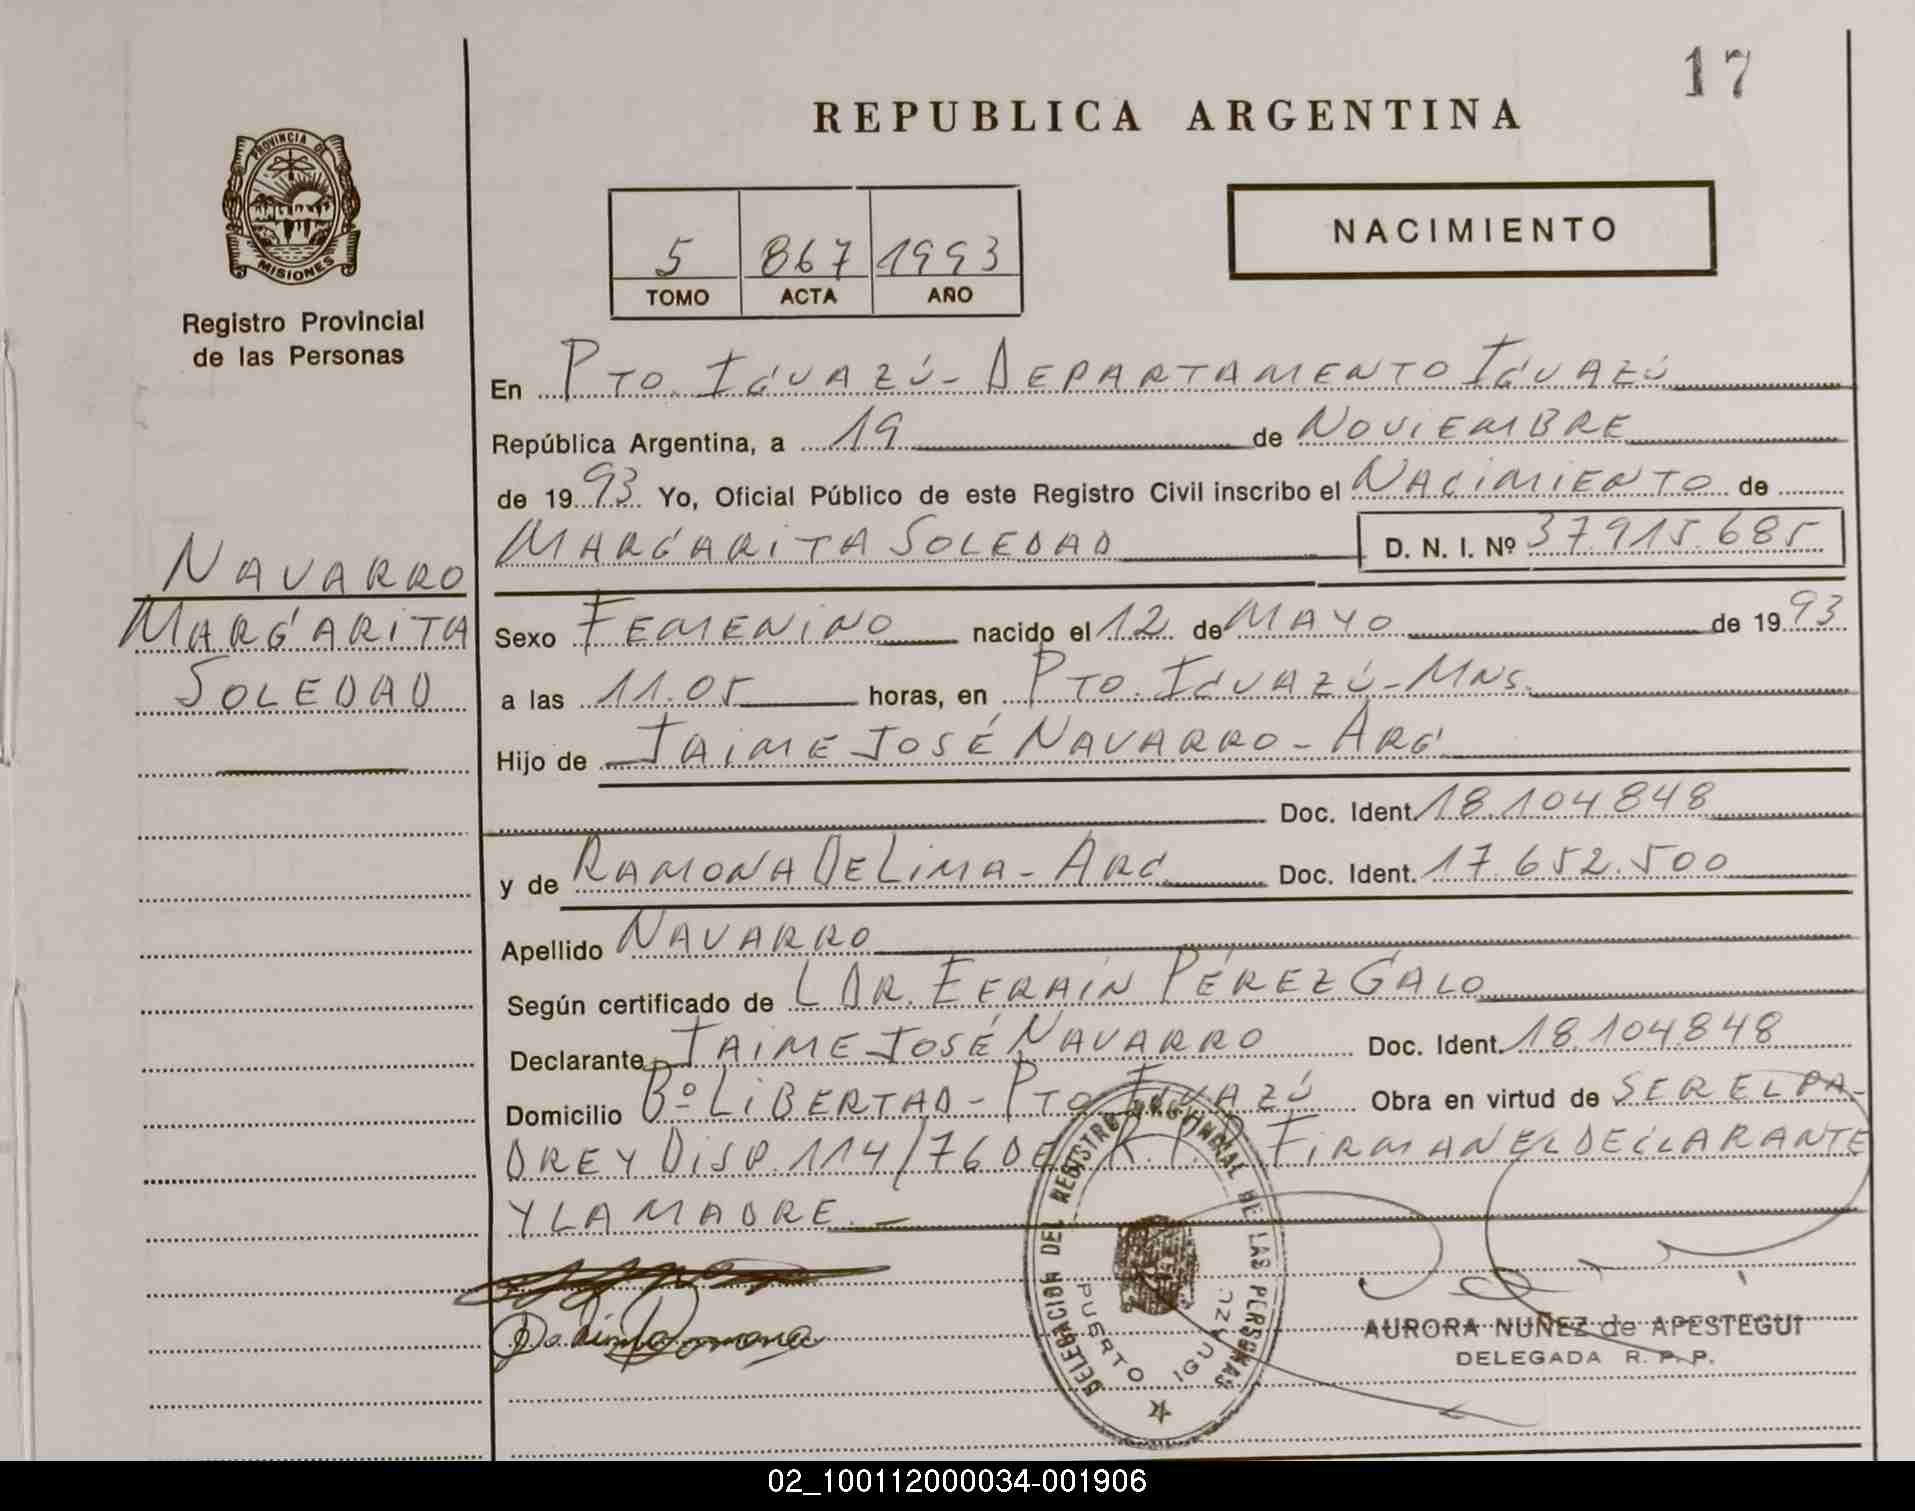 17
REPUBLICA ARGENTINA
PROVINCIA DE
MISIONES
Registro Provincial
de las Personas
5 867 1993
TOMO ACTA AÑO
NACIMIENTO
En PTO. IGUAZÚ - DEPARTAMENTO IGUAZÚ
República Argentina, a 19 de NOVIEMBRE
de 1993 Yo, Oficial Público de este Registro Civil inscribo el NACIMIENTO de
MARGARITA SOLEDAD D. N. I. Nº 37.915.685
NAVARRO
MARGARITA
SOLEDAD
Sexo FEMENINO nacido el 12 de MAYO de 1993
a las 11.05 horas, en PTO. IGUAZÚ - MNS.
Hijo de JAIME JOSÉ NAVARRO - ARG
Doc. Ident. 18.104848
y de RAMONA DE LIMA - ARG. Doc. Ident. 17.652.500
Apellido NAVARRO
Según certificado de L DR. EFRAÍN PÉREZ GALO
Declarante JAIME JOSÉ NAVARRO Doc. Ident. 18.104848
Domicilio Bº LIBERTAD - PTO IGUAZÚ Obra en virtud de SER EL PA-
DRE Y DISP. 114/76 DE R.P.P FIRMAN EL DECLARANTE
Y LA MADRE. -
DELEGACIÓN DEL REGISTRO PROVINCIAL DE LAS PERSONAS
PUERTO IGUAZU
AURORA NUÑEZ de APESTEGUI
DELEGADA R. P. P.
02_100112000034-001906